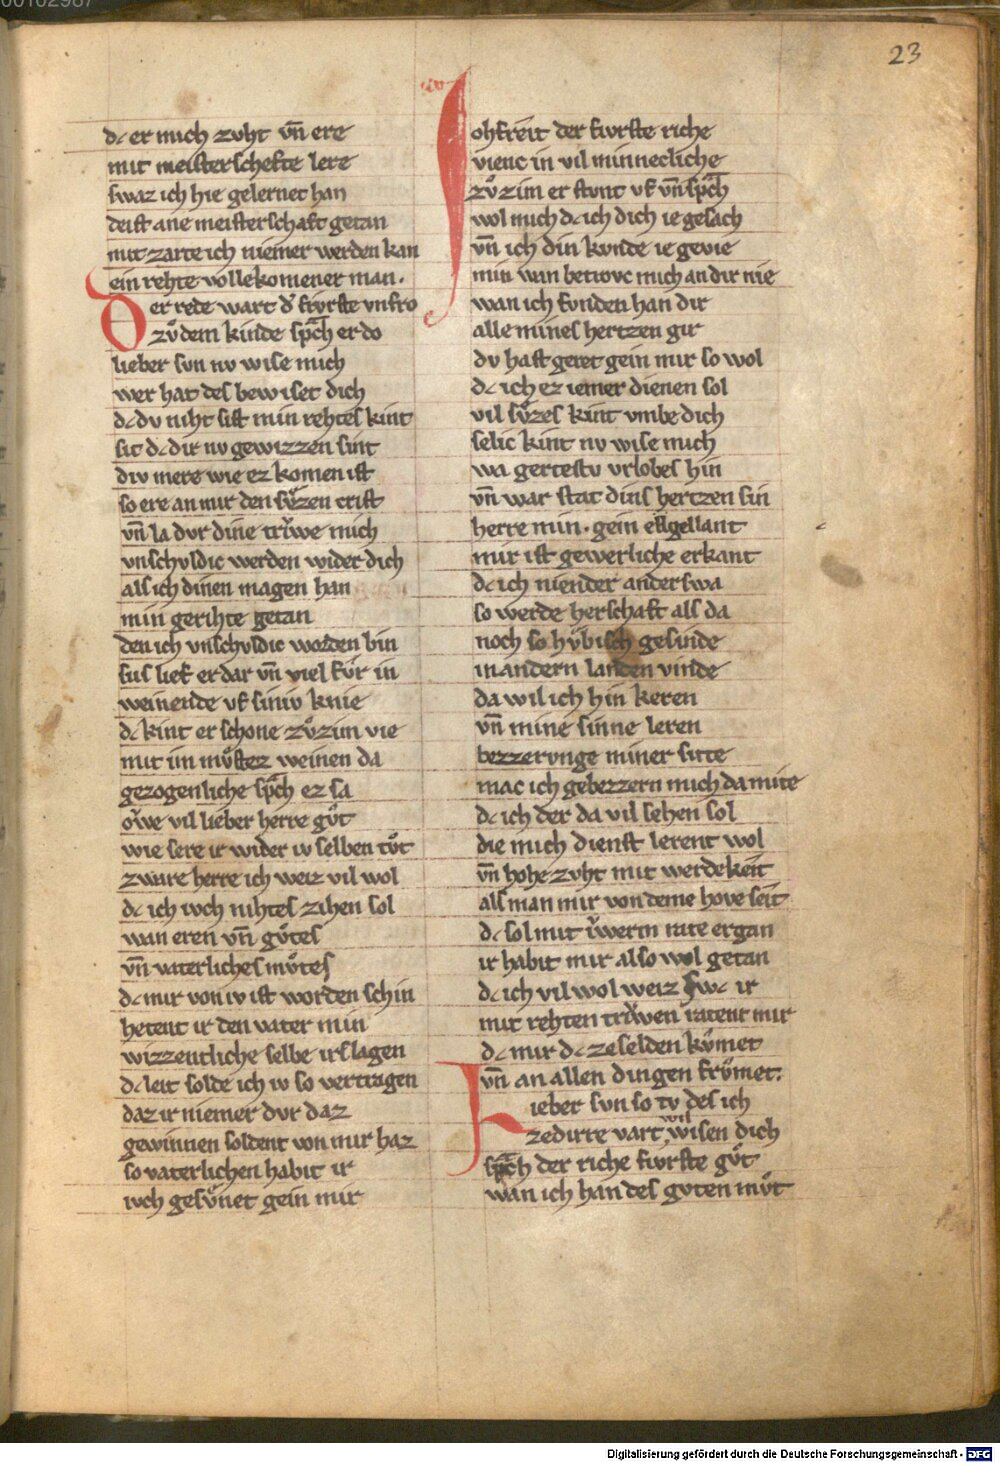 00102987
23
dc er mich zvht vn̄ ere
mit meisterschefte lere
swaz ich hie gelernet han
deist ane meisterschaft getan
mit zarte ich niemer werden kan
ein rehte vollekomener man.
Der rede wart d̾ fv̓rste vnfro
zvͦ dem kinde sprͣch er do
lieber svn nv wise mich
wer hat des bewiset dich
dc dv niht sist min rehtes kint
sit dc dir nv gewizzen sint
div mere wie ez komen ist
so ere an mir den svͤzen crist
vn̄ la dvr dine trv̓we mich
vnschvldic werden wider dich
als ich dinen magen han
min gerihte getan
den ich vnschvldic worden bin
sus lief er dar vn̄ viel fv̓r in
weinende vf siniv knie
dc kint er schone zvͦ zim vie
mit im mvͦstez weinen da
gezogenliche sprͣch ez sa
oͮwe vil lieber herre gvͦt
wie sere ir wider iv selben tvͦt
zware herre ich weiz vil wol
dc ich ivch nihtes zihen sol
wan eren vn̄ gvͦtes
vn̄ vaterliches mvͦtes
dc mir von iv ist worden schin
hetent ir den vater min
wizzentliche selbe irslagen
dc leit solde ich iv so vertragen
daz ir niemer dvr daz
gewinnen soldent von mir haz
so vaterlichen habit ir
ivch gesvͤnet gein mir
Johfreit der fvrste riche
vienc in vil minnecliche
zvͦ zim er stvnt vf vn̄ sprͣch
wol mich dc ich dich ie gesach
vn̄ ich din kvnde ie gevie
min wan betrovc mich an dir nie
wan ich fvnden han dir
alle mines hertzen gir
dv hast geret gein mir so wol
dc ich ez iemer dienen sol
vil svͤzes kint vmbe dich
selic kint nv wise mich
wa gertestv vrlobes hin
vn̄ war stat dins hertzen sin
herre min. gein engellant
mir ist gewerliche erkant
dc ich niender anderswa
so werde herschaft als da
noch so hv̓bisch gesinde
in andern landen vinde
da wil ich hin keren
vn̄ mine sinne leren
bezzervnge miner sitte
mac ich gebezzern mich da mitte
dc ich der da vil sehen sol
die mich dienst lerent wol
vn̄ hohe zvht mit werdekeit
als man mir von deme hove seit
dc sol mit v̓werm rate ergan
ir habit mir also wol getan
dc ich vil wol weiz swc ir
mit rehten trv̓wen ratent mir
dc mir dc ze selden kvͤmet
vn̄ an allen dingen frvͤmet.
Lieber svn so tv des ich
wil
ze dirre vart wisen dich
sprͣch der riche fvrste gvͦt
wan ich han des gvten mvͦt
Digitalisierung gefördert durch die Deutsche Forschungsgemeinschaft - DFG